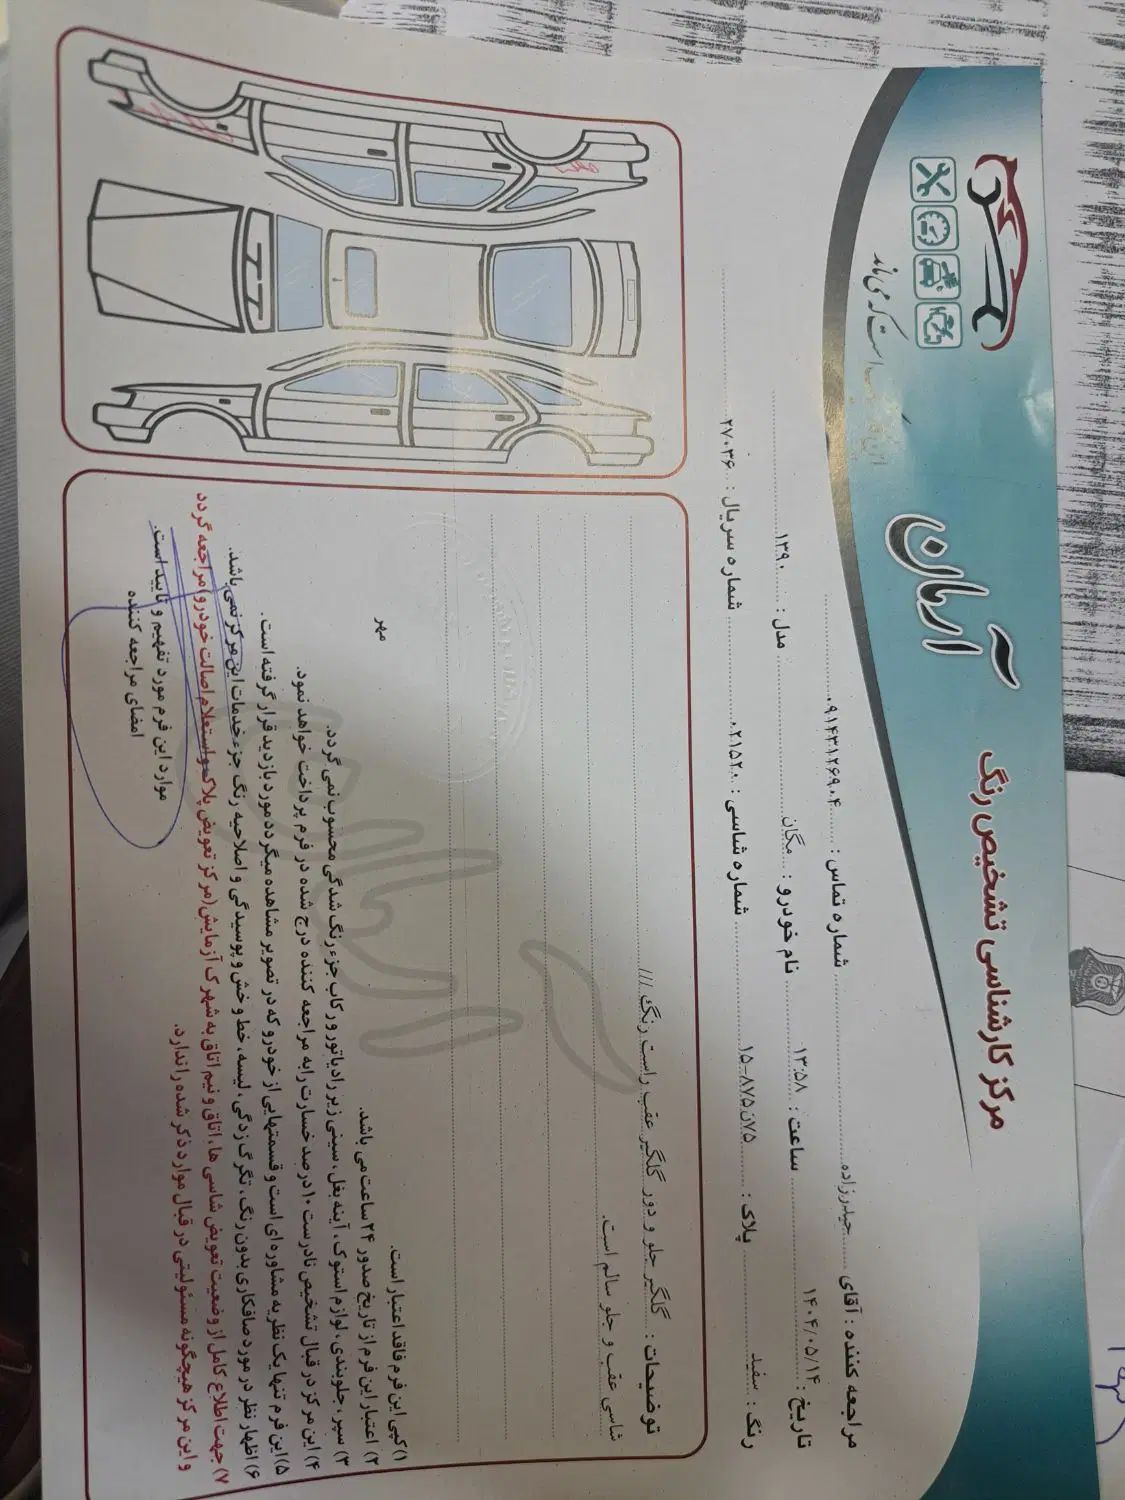 مرکز کارشناسی تشخیص رنگ
آرمان
است که می ماند
مراجعه کننده : آقای حیدرزاده شماره تماس : ۰۹۱۴۳۱۲۶۹۰۴
تاریخ : ۱۴۰۴/۰۵/۱۴ ساعت : ۱۳:۵۸ نام خودرو : مگان مدل : ۱۳۹۰
رنگ : سفید پلاک : ۷۵ن۸۷۵-۱۵ شماره شاسی : ۰۲۱۵۲۰ شماره سریال : ۲۷۰۳۶
توضیحات : گلگیر جلو و دور گلگیر عقب راست رنگ ///
شاسی عقب و جلو سالم است.
۱) کپی این فرم فاقد اعتبار است.
۲) اعتبار این فرم از تاریخ صدور ۲۴ ساعت می باشد.
مهر
۳) سپر، جلوبندی، لوازم استوک، آینه بغل، سینی زیر رادیاتور و رکاب جزء رنگ شدگی محسوب نمی گردد.
۴) این مرکز در قبال تشخیص نادرست ۱۰ درصد خسارت را به مراجعه کننده درج شده در فرم پرداخت خواهد نمود.
۵) این فرم تنها یک نظریه مشاوره ای است و قسمتهایی از خودرو که در تصویر مشاهده میگردد مورد بازدید قرار گرفته است.
۶) اظهار نظر در مورد صافکاری بدون رنگ، تگرگ زدگی، لیسه، خط و خش و پوسیدگی و اصلاحیه رنگ جزء خدمات این مرکز نمی باشد.
۷) جهت اطلاع کامل از وضعیت تعویض شاسی ها، اتاق و نیم اتاق به شهرک آزمایش (مرکز تعویض پلاک و استعلام اصالت خودرو) مراجعه گردد
و این مرکز هیچگونه مسئولیتی در قبال موارد ذکر شده را ندارد.
موارد این فرم مورد تفهیم و تایید است.
امضای مراجعه کننده